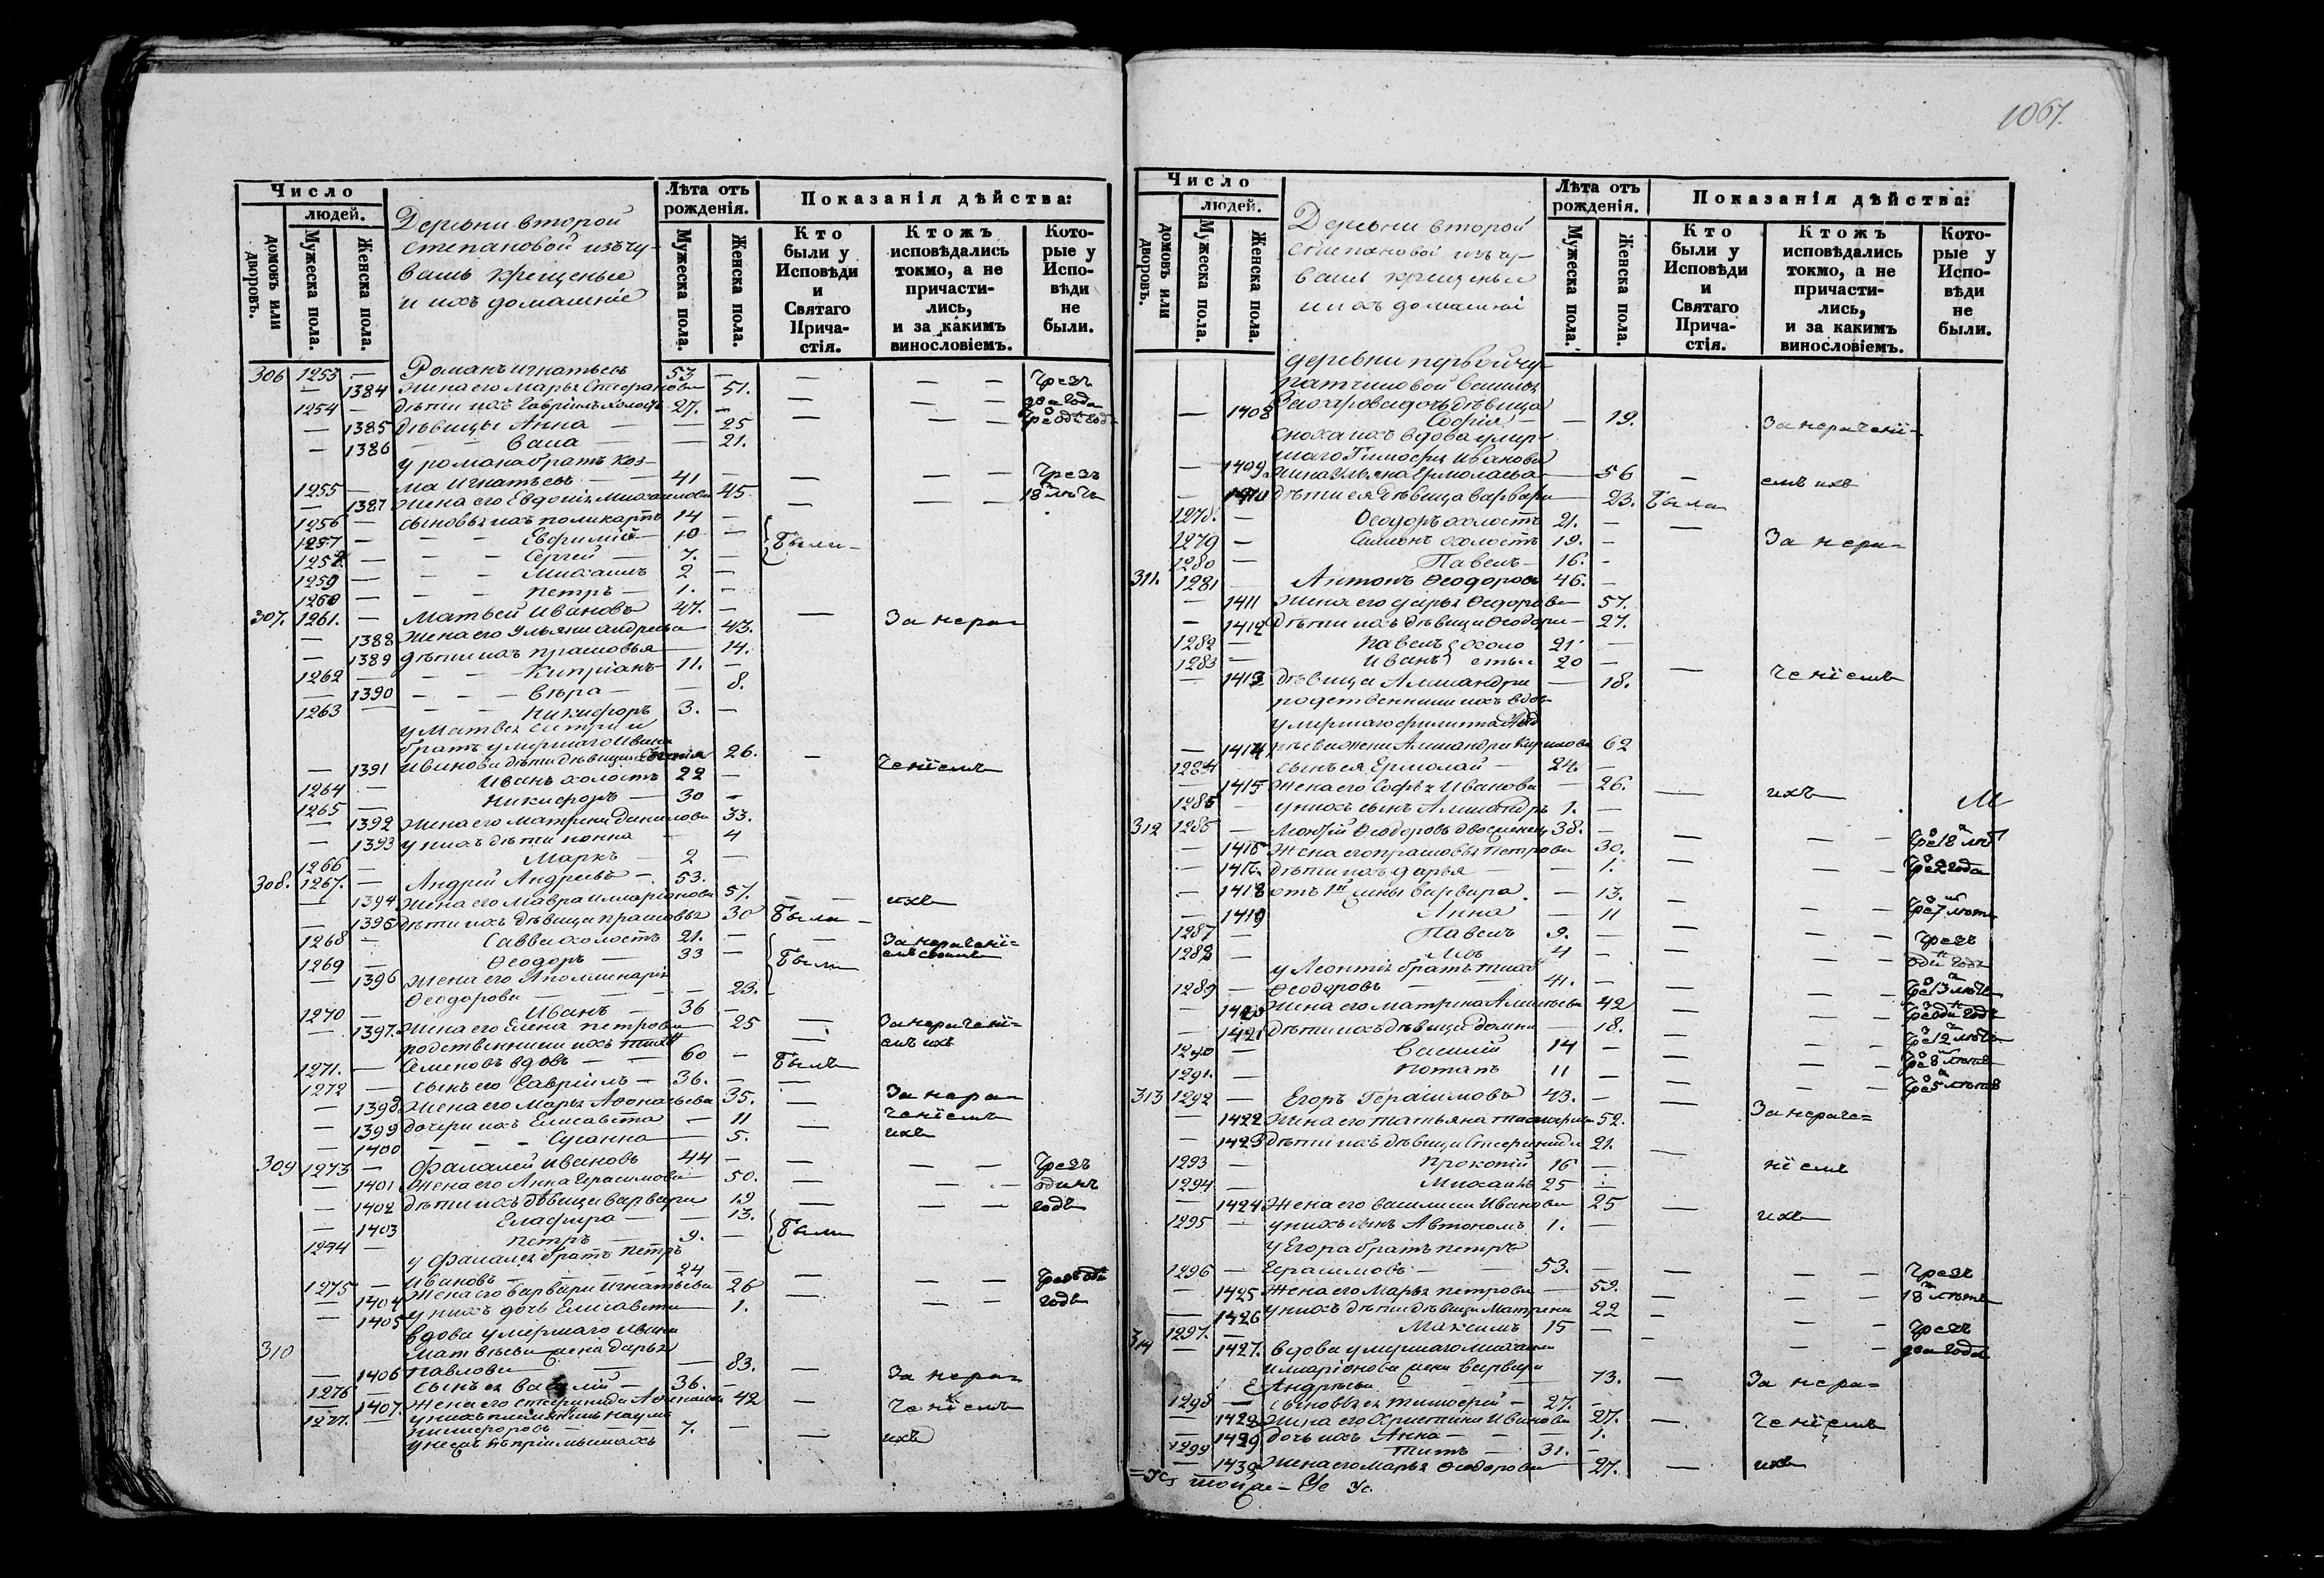 1067.
Число
людей.
домовъ или дворовъ.
Мужеска пола.
Женска пола.
Деревни второй
степановой изъ чу-
вашъ крещеные
и ихъ домашніе
Лѣта отъ рожденія.
Мужеска пола.
Женска пола.
Показанія дѣйства:
Кто были у Исповѣди и Святаго Прича-стія.
Ктожъ исповѣдались токмо, а не причасти-лись, и за какимъ винословіемъ.
Кото-рые у Испо-вѣди не были.
306 1253 — Романъ Игнатьевъ 53. — — — — Чрезъ
— 1384 Жена его Марья Стефанова 51. — — — два года
1254 — дѣти ихъ Гавріилъ холостъ 27. —
— 1385 дѣвицы Анна — — 25
— 1386 — — Васа — — 21.
у романа братъ Коз-
1255 — ма Игнатьевъ — 41 — — — — Чрезъ
— 1387 Жена его Евдокія Михаилова 45 — 18 лѣтъ
1256 — сыновья ихъ поликарпъ 14 —
1257 — — — Евфимій — 10 — Были —
1258 — — — Сергей — 7. —
1259 — — — Михаилъ 2 —
1260 — — — петръ — 1. —
307. 1261. — Матвей Ивановъ 47. — — За нера=
— 1388 Жена его Ульяна Андреева 43.
— 1389 дѣти ихъ прасковья 14.
1262 — — — Кипріанъ — 11. —
— 1390 — — — вѣра — — 8.
1263 — — — Никифоръ 3. —
у Матвея
братъ умершаго Ивана
— 1391 Иванова дѣти дѣвица 26. — ченіемъ
1264 — Иванъ холостъ 22 —
1265 — Никифоръ — 30 —
— 1392 Жена его матрена данилова 33.
— 1393 у нихъ дѣти нонна — 4
1266 — Маркъ — 2 —
308. 1267. — Андрей Андреевъ — 53.
— 1394 Жена его Мавра илларіонова 57. — — ихъ
— 1395 дѣти ихъ дѣвица прасковья 30 Была —
1268 — Савва холостъ 21. — — За нерачені=
1269 — Ѳеодоръ — 33 — Были емъ своимъ
— 1396 Жена его Аполлинарія
Ѳеодорова — — — 23.
1270 — Иванъ — 36 —
— 1397. Жена его Елена петрова 25 — За нерачені=
родственники ихъ емъ ихъ
1271. — Семеновъ вдовъ — — 60 — Былъ
1272 — сынъ его Гавріилъ — 36. — —
— 1398 Жена его Марья Аѳонасьева 35. — За нера=
— 1399 дочери ихъ Елисавета — 11 — ченіемъ
— 1400 — — Сусанна — 5. ихъ
309 1273 — Фалалей Ивановъ 44 — — — — Чрезъ
— 1401 Жена его Анна Герасимова 50. — — — одинъ
— 1402 дѣти ихъ дѣвица варвара 19 — — — годъ
— 1403 Глафира — — 13.
1274 — петръ — 9. — Были
у Фалалея братъ петръ
1275 — Ивановъ — — — 24 — — — — Чрезъ оди
— 1404 Жена его варвара Игнатьева 26 — — — годъ
— 1405 у нихъ дочь Елисавета — 1.
310 вдова умершаго Ивана
Матвеева жена дарья
— 1406 павлова — — — 83. — За нера=
1276 — сынъ ея василій — 36. —
— 1407. Жена его 42 — ченіемъ
1277. — у нихъ племянникъ наумъ
никифоровъ — — 7. — — ихъ
Число
людей.
домовъ или дворовъ.
Мужеска пола.
Женска пола.
Деревни второй
степановой изъ чу-
вашъ крещеные
и ихъ домашніе
Лѣта отъ рожденія.
Мужеска пола.
Женска пола.
Показанія дѣйства:
Кто были у Исповѣди и Святаго Прича-стія.
Ктожъ исповѣдались токмо, а не причасти-лись, и за какимъ винословіемъ.
Кото-рые у Испо-вѣди не были.
деревни первой
Василья
Захарова дочь дѣвица
— 1408 Софія — — 19. За нерачені=
сноха ихъ вдова умер-
шаго Тимофея Иванова
— 1409 жена Ульяна Ермолаева 56 — емъ ихъ
— 1410 дѣти ея дѣвица варвара — 23. Была
1278. — Ѳеодоръ холостъ 21. — —
1279 — Симонъ холостъ 19. — За нера=
1280 — Павелъ — 16. -
311. 1281 — Антонъ Ѳеодоровъ 46. —
— 1411 Жена его дарья Ѳеодорова 57.
— 1412 дѣти ихъ дѣвица Ѳеодора — 27.
1282 — павелъ холо 21 —
1283 — иванъ сты 20 —
— 1413 дѣвица Александра — 18. — ченіемъ
родственники ихъ вдовы
умершаго филиппа
— 1414 жена Александра Кирилова 62
1284 — сынъ ея Ермолай — 24. —
— 1415 Жена его Софья Иванова — 26. — ихъ
1285 — у нихъ сынъ Александръ 1. —
312 1286 — Леонтій Ѳеодоровъ двоеженец 38. — — — Чре 18 лѣт
— 1416 Жена его прасковья петрова 30.
— 1416. дѣти ихъ дарья — — 1. — — — Чре 2 года
— 1418 отъ 1й жены варвара — 13. —
— 1419 Анна — 11 — — Чре 7 лѣтъ
1287 — Павелъ 9. — — — — Чрезъ
1288 — Левъ 4 — один годъ
у Леонтія братъ
1289 — Ѳеодоровъ — — 41. — — — Чре 13 лѣтъ
— 1420 Жена его матрена Алексеева 42 — — — Чре один годъ
— 1421 дѣти ихъ дѣвица домна — 18. — — Чре 12 лѣтъ
1290 — Василій 14 — — — Чре 8 лѣтъ
1291. — потапъ 11 — — — — Чре 5 лѣтъ
313 1292 — Егоръ Герасимовъ 43. — — За нераче=
— 1422 Жена его татьяна 52.
— 1423 дѣти ихъ дѣвица Стефанида 21. —
1293 — прокопій 16 — ніемъ
1294 — Михаилъ 25 —
— 1424 Жена его василиса Иванова 25 — ихъ
1295 — у нихъ сынъ Автономъ 1. —
у Егора братъ петръ
1296 — Герасимовъ — — 53. — — — — Чрезъ
— 1425 Жена его Марья петрова — 59. — — — 18 лѣтъ
— 1426 у нихъ дѣти дѣвица Матрена 22 — — — Чрезъ
1297. — Максимъ 15 — — — — два года
314 — 1427. вдова умершаго михаила
иларіонова жена варвара
Андреева — — — 73. — За нера=
1298 — сыновья ея тимофей — 27. —
— 1428 Жена его Христина Иванова 27. — ченіемъ
— 1429 дочь ихъ Анна — — — 1.
1299 — титъ — 31. —
— 1430 Жена его марья Ѳеодорова 27. — ихъ